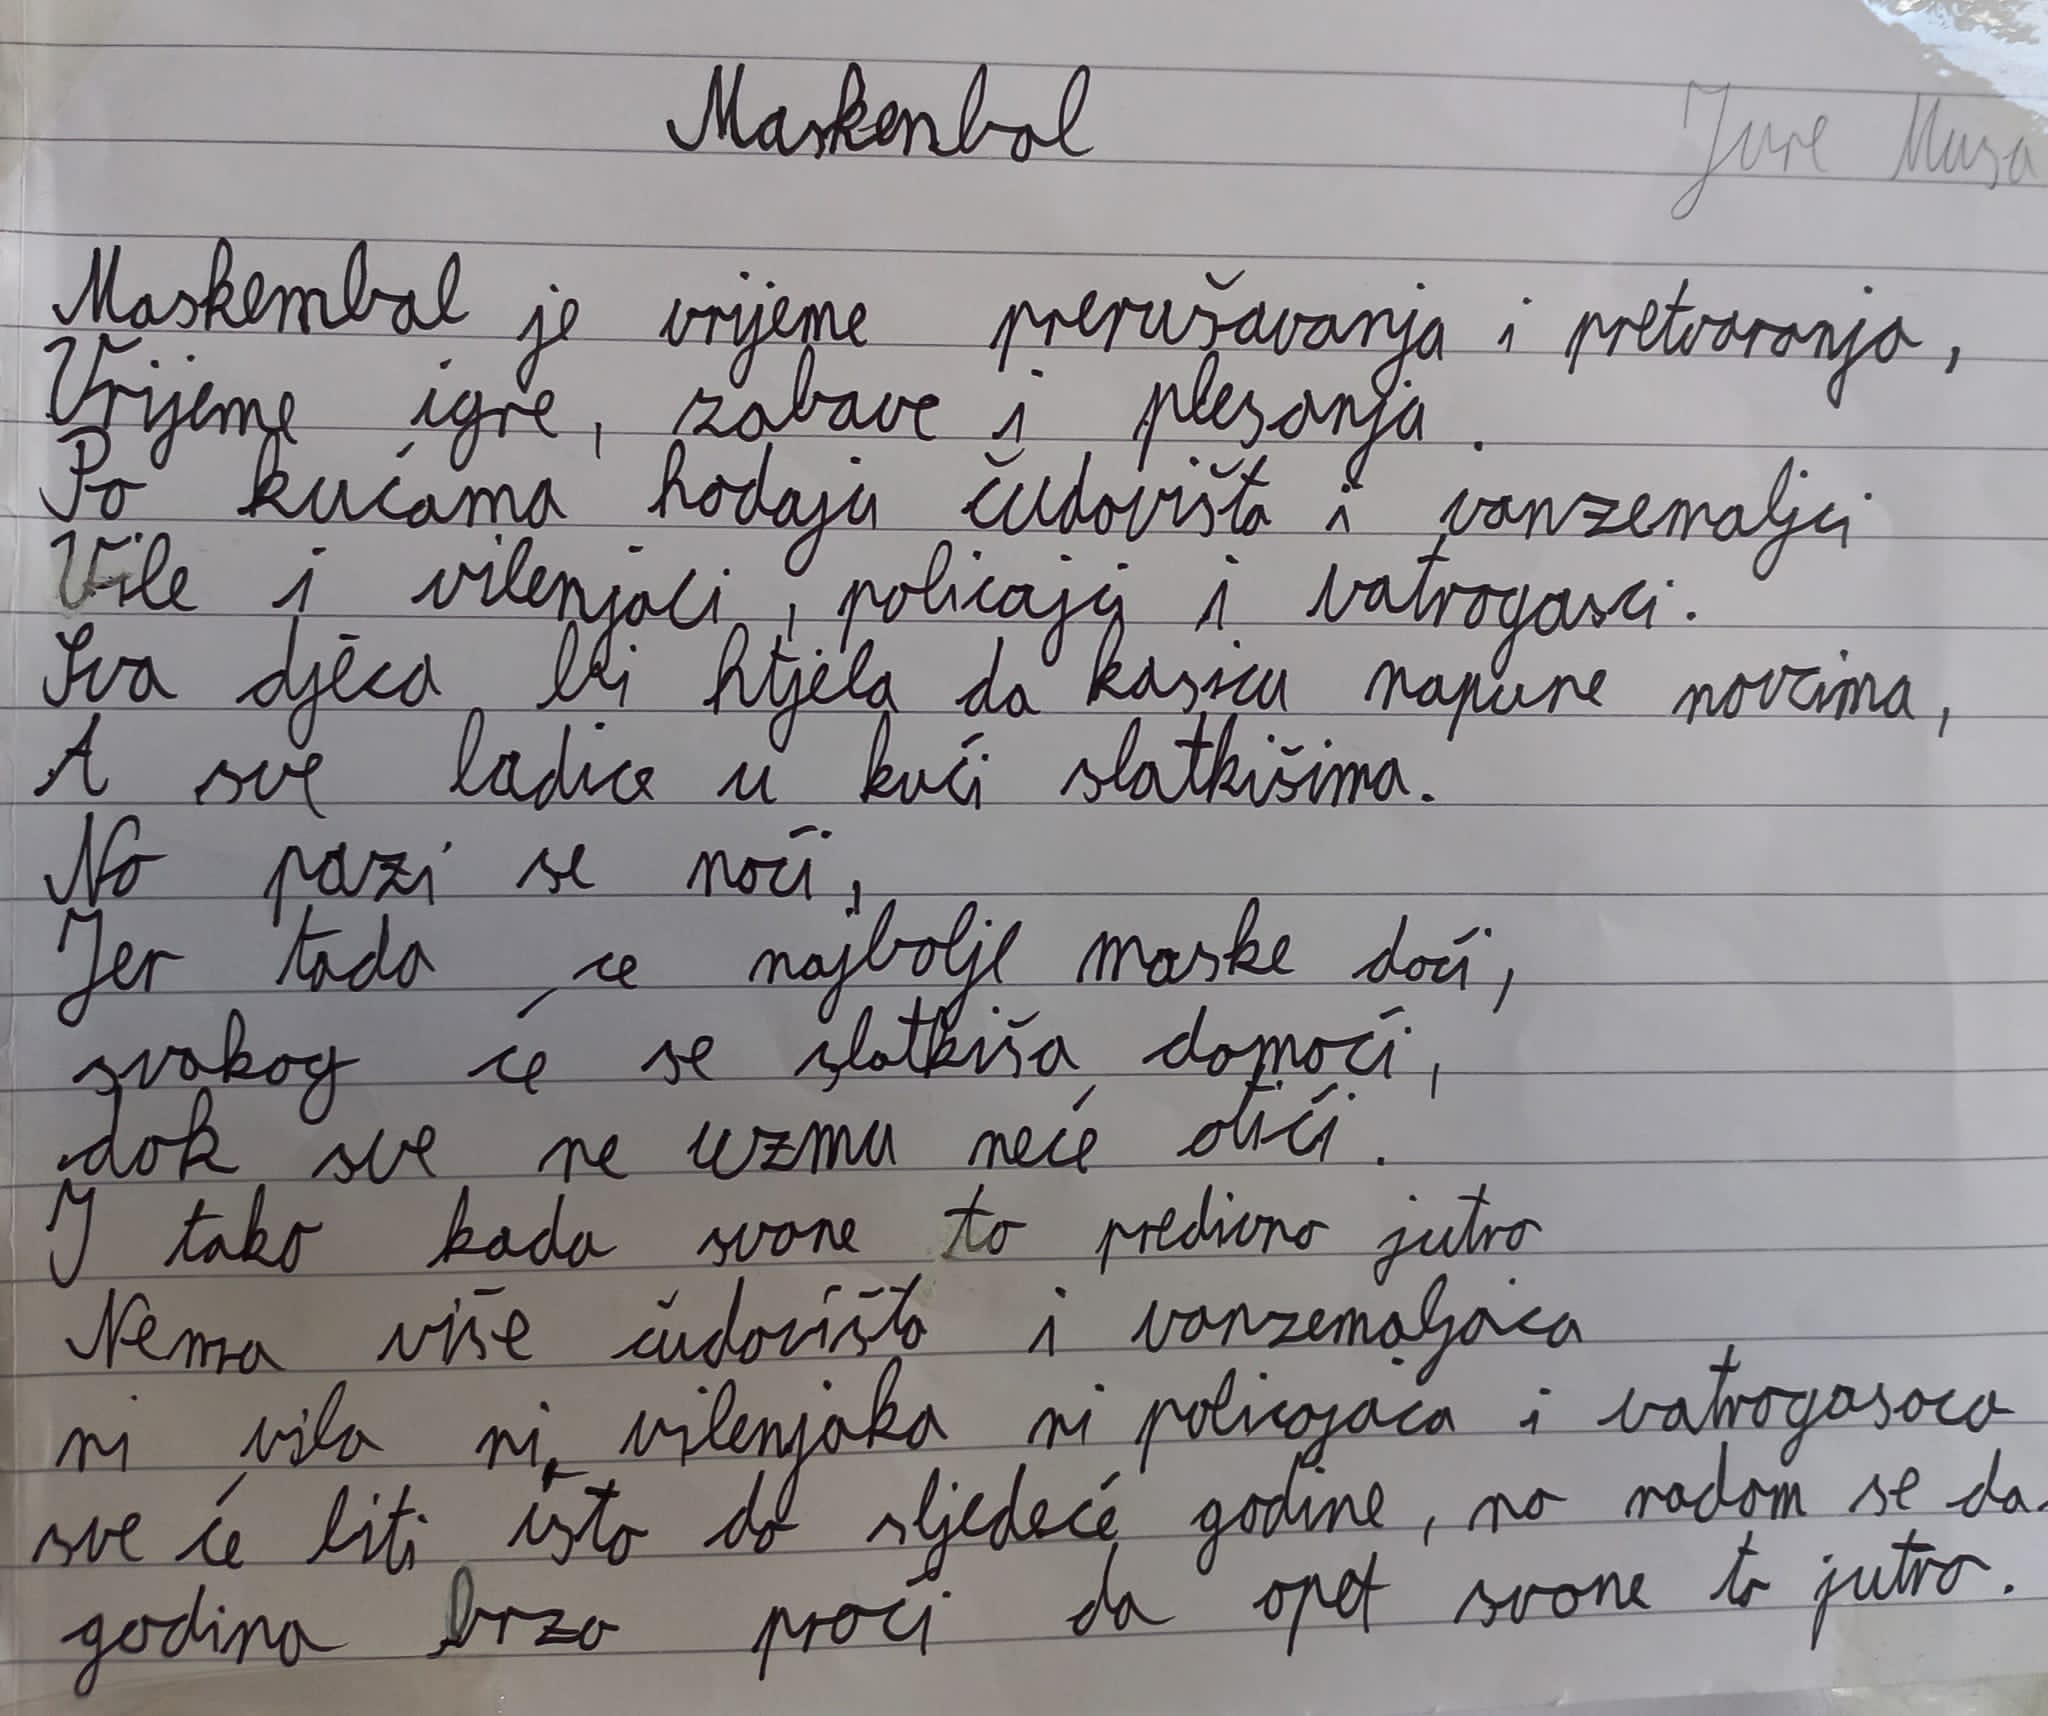 Maskenbal
Jure Musa
Maskembal je vrijeme prerušavanja i pretvaranja,
Vrijeme igre, zabave i plesanja.
Po kućama hodaju čudovišta i vanzemaljci
Vile i vilenjaci, policajci i vatrogasci.
Sva djeca bi htjela da kasicu napune novcima,
A sve ladice u kući slatkišima.
No pazi se noći,
Jer tada će najbolje maske doći,
svakog će se slatkiša domoći,
dok sve ne uzmu neće otići.
I tako kada svane to predivno jutro
Nema više čudovišta i vanzemaljaca
ni vila ni vilenjaka ni policajaca i vatrogasaca
sve će biti isto do sljedeće godine, no nadam se da
godina brzo proći da opet svane to jutro.